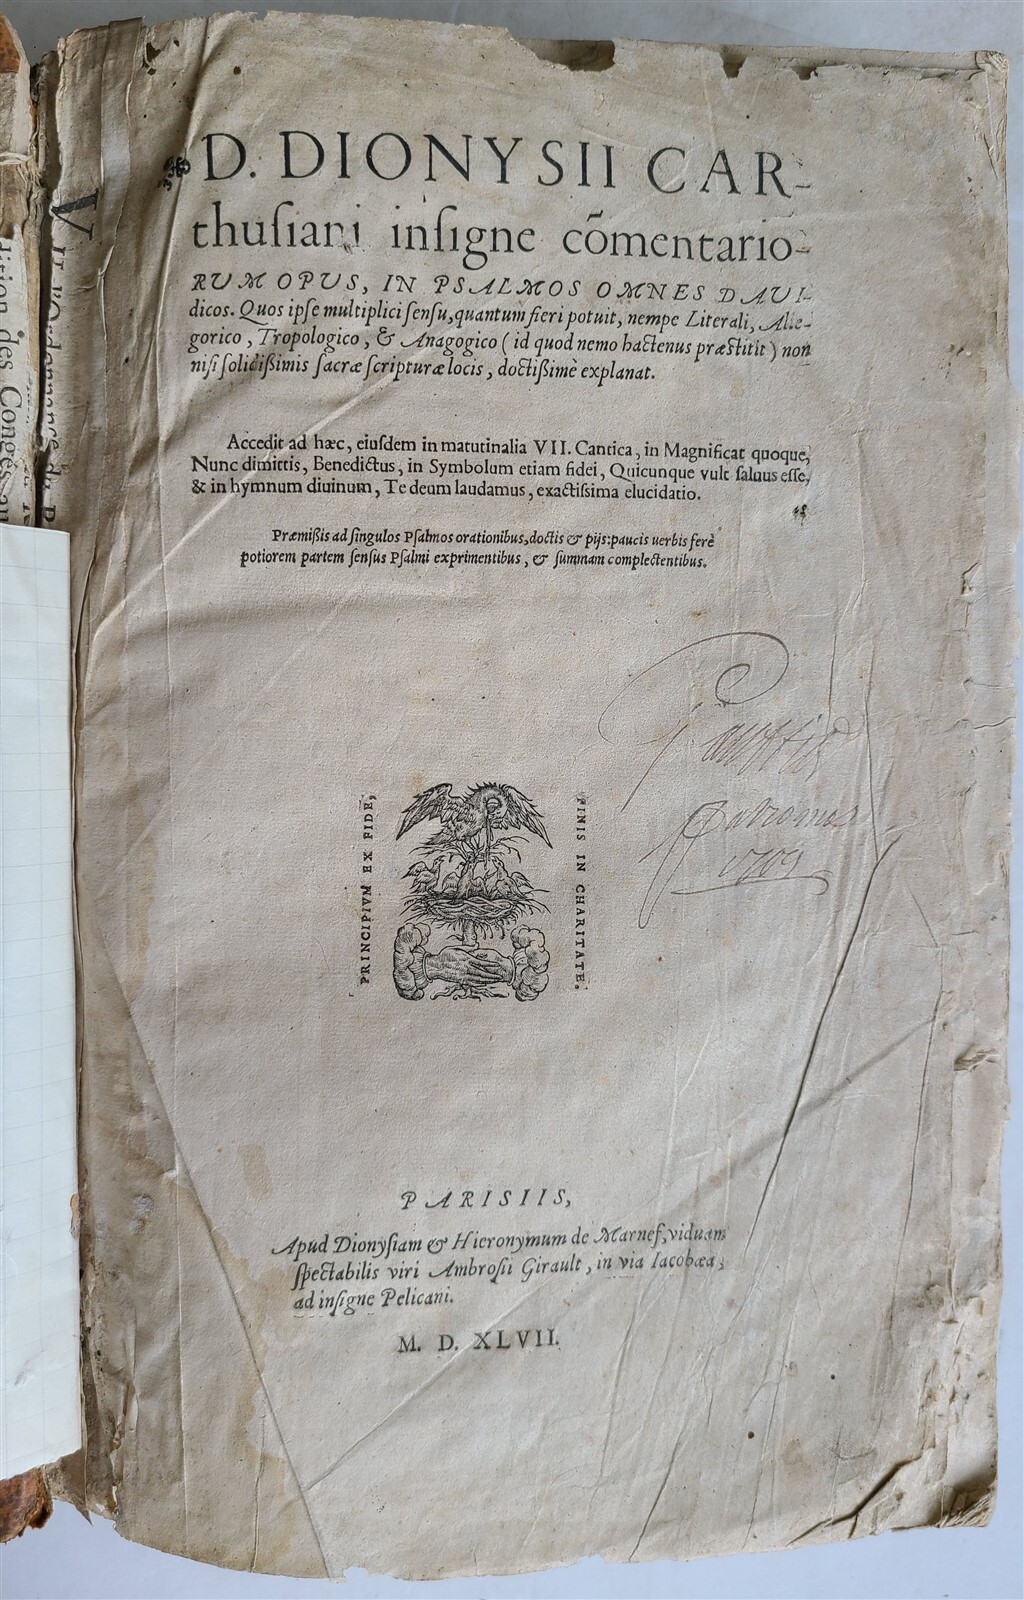 D. DIONYSII CAR-
thuſiani inſigne cõmentario-
RUM OPUS, IN PSALMOS OMNES DAUI-
dicos. Quos ipſe multiplici ſenſu, quantum fieri potuit, nempe Literali, Alle-
gorico, Tropologico, & Anagogico (id quod nemo hactenus præſtitit) non
niſi ſolidißimis ſacræ ſcripturæ locis, doctißimè explanat.
Accedit ad hæc, eiuſdem in matutinalia VII. Cantica, in Magnificat quoque,
Nunc dimittis, Benedictus, in Symbolum etiam fidei, Quicunque vult ſaluus eſſe,
& in hymnum diuinum, Te deum laudamus, exactiſsima elucidatio.
Præmißis ad ſingulos Pſalmos orationibus, doctis & pijs: paucis uerbis ferè
potiorem partem ſenſus Pſalmi exprimentibus, & ſummam complectentibus.
PRINCIPIVM EX FIDE,
FINIS IN CHARITATE.
1709
PARISIIS,
Apud Dionyſiam & Hieronymum de Marnef, viduam
ſpectabilis viri Ambroſii Girault, in via Iacobæa,
ad inſigne Pelicani.
M. D. XLVII.
V
dition des Congés